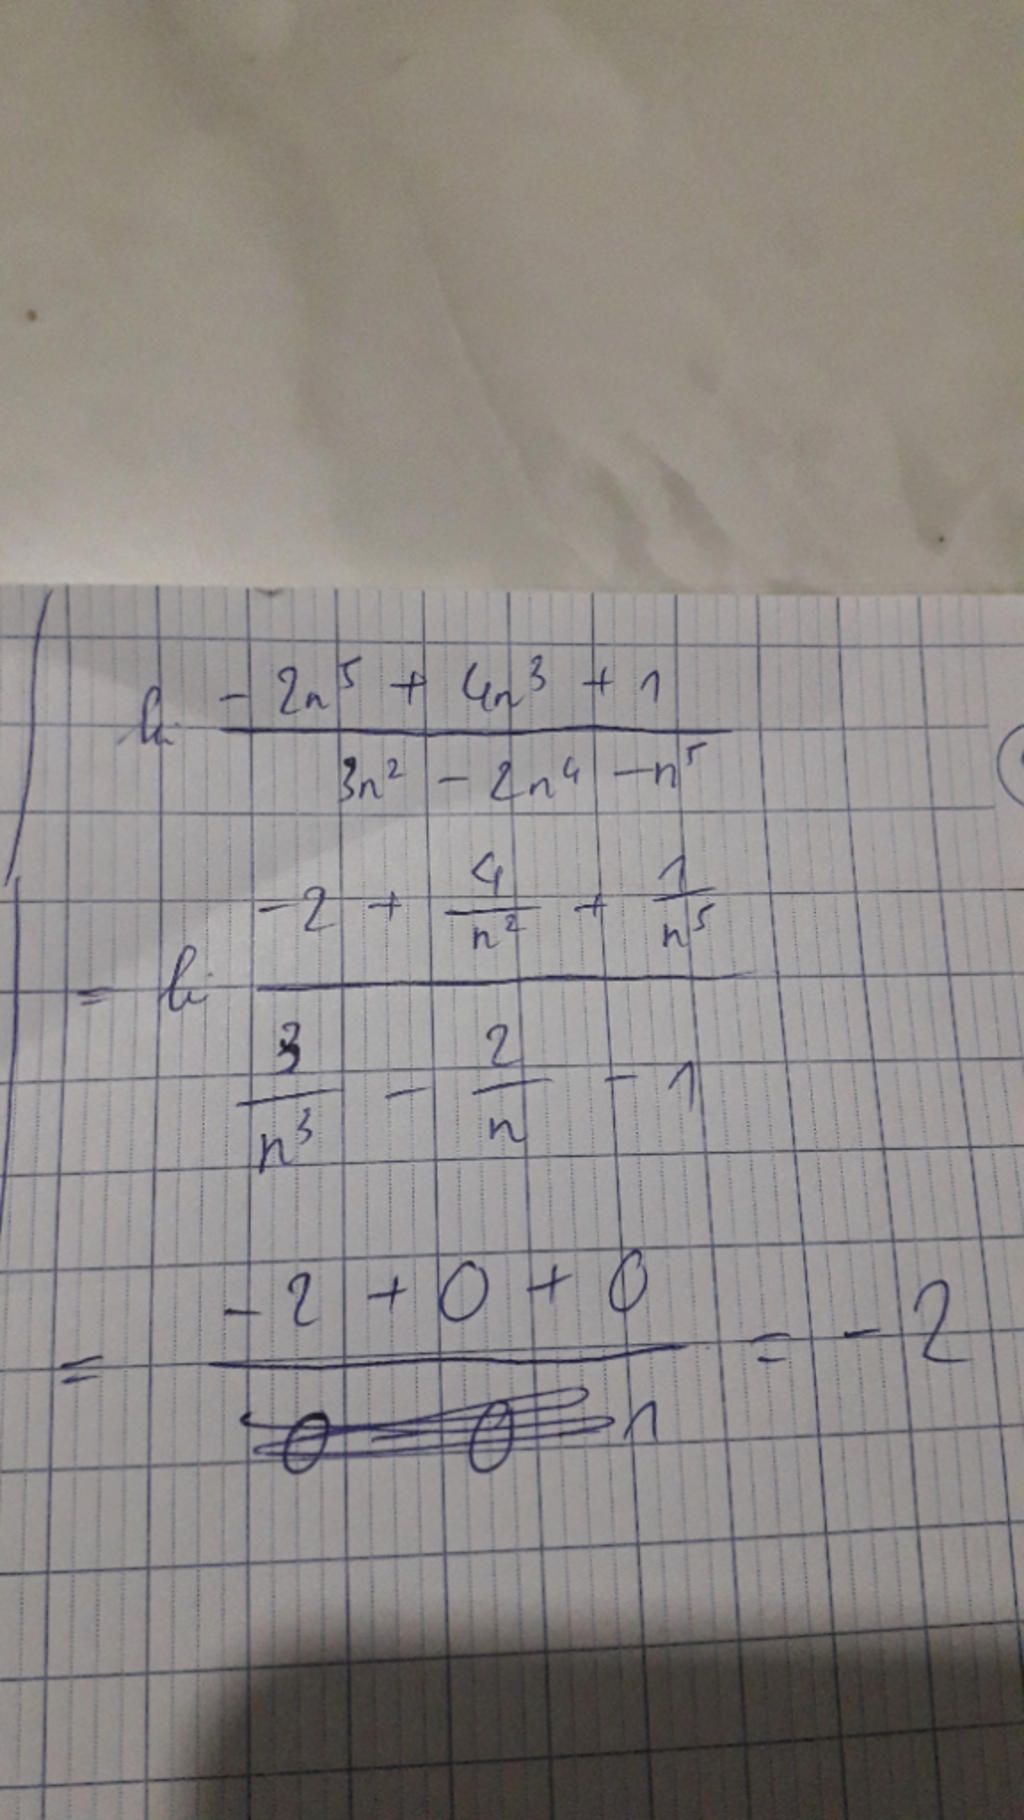 li (- 2n⁵ + 4n³ + 1) / (3n² - 2n⁴ - n⁵)
= li (-2 + 4/n² + 1/n⁵) / (3/n³ - 2/n - 1)
= (- 2 + 0 + 0) / 1 = - 2